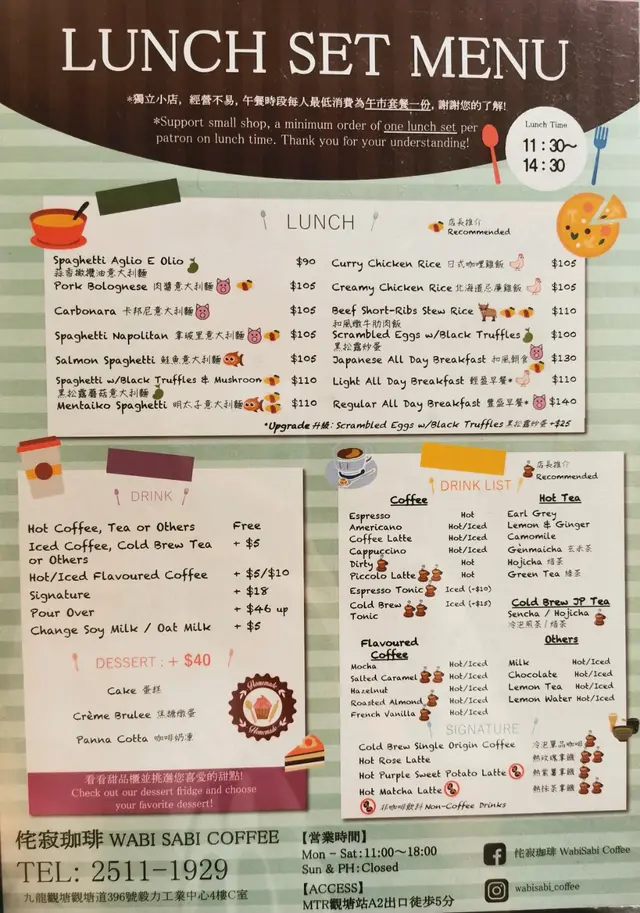 LUNCH SET MENU
*獨立小店，經營不易，午餐時段每人最低消費為午市套餐一份，謝謝您的了解!
*Support small shop, a minimum order of one lunch set per
patron on lunch time. Thank you for your understanding!
Lunch Time
11:30~
14:30
LUNCH
店長推介
Recommended
Spaghetti Aglio E Olio $90
蒜香橄欖油意大利麵
Pork Bolognese 肉醬意大利麵 $105
Carbonara 卡邦尼意大利麵 $105
Spaghetti Napolitan 拿破里意大利麵 $105
Salmon Spaghetti 鮭魚意大利麵 $105
Spaghetti w/Black Truffles & Mushroom $110
黑松露蘑菇意大利麵
Mentaiko Spaghetti 明太子意大利麵 $110
Curry Chicken Rice 日式咖哩雞飯 $105
Creamy Chicken Rice 北海道忌廉雞飯 $105
Beef Short-Ribs Stew Rice $110
和風燉牛肋肉飯
Scrambled Eggs w/Black Truffles $100
黑松露炒蛋
Japanese All Day Breakfast 和風朝食 $130
Light All Day Breakfast 輕盈早餐* $110
Regular All Day Breakfast 豐盛早餐* $140
*Upgrade 升級: Scrambled Eggs w/Black Truffles 黑松露炒蛋 +$25
DRINK
Hot Coffee, Tea or Others Free
Iced Coffee, Cold Brew Tea + $5
or Others
Hot/Iced Flavoured Coffee + $5/$10
Signature + $18
Pour Over + $46 up
Change Soy Milk / Oat Milk + $5
DESSERT : + $40
Cake 蛋糕
Crème Brulee 焦糖燉蛋
Panna Cotta 咖啡奶凍
Homemade
Homemade
看看甜品櫃並挑選您喜愛的甜點!
Check out our dessert fridge and choose
your favorite dessert!
店長推介
Recommended
DRINK LIST
Coffee
Espresso Hot
Americano Hot/Iced
Coffee Latte Hot/Iced
Cappuccino Hot/Iced
Dirty Hot
Piccolo Latte Hot
Espresso Tonic Iced (+$10)
Cold Brew Iced (+$15)
Tonic
Hot Tea
Earl Grey
Lemon & Ginger
Camomile
Genmaicha 玄米茶
Hojicha 焙茶
Green Tea 綠茶
Cold Brew JP Tea
Sencha / Hojicha
冷泡煎茶/焙茶
Flavoured
Coffee
Mocha Hot/Iced
Salted Caramel Hot/Iced
Hazelnut Hot/Iced
Roasted Almond Hot/Iced
French Vanilla Hot/Iced
Others
Milk Hot/Iced
Chocolate Hot/Iced
Lemon Tea Hot/Iced
Lemon Water Hot/Iced
SIGNATURE
Cold Brew Single Origin Coffee 冷泡單品咖啡
Hot Rose Latte 熱玫瑰拿鐵
Hot Purple Sweet Potato Latte 熱紫薯拿鐵
Hot Matcha Latte 熱抹茶拿鐵
非咖啡飲料 Non-Coffee Drinks
侘寂珈琲 WABI SABI COFFEE
TEL: 2511-1929
九龍觀塘觀塘道396號毅力工業中心4樓C室
【営業時間】
Mon - Sat:11:00~18:00
Sun & PH:Closed
【ACCESS】
MTR觀塘站A2出口徒歩5分
侘寂珈琲 WabiSabi Coffee
wabisabi_coffee